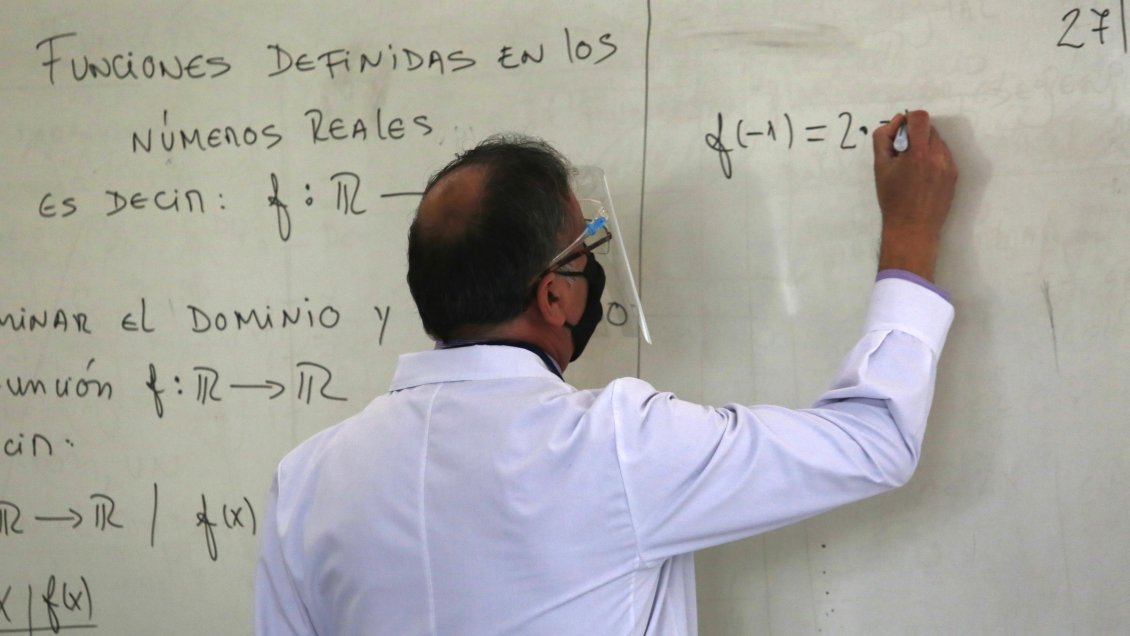 FUNCIONES DEFINIDAS EN los
NÚMEROS REALES
ES DECIR: f: ℝ —
MINAR El DOMINIO y
unción f: ℝ → ℝ
cir:
ℝ → ℝ | f(x)
x | f(x)
27
f(-1) = 2·